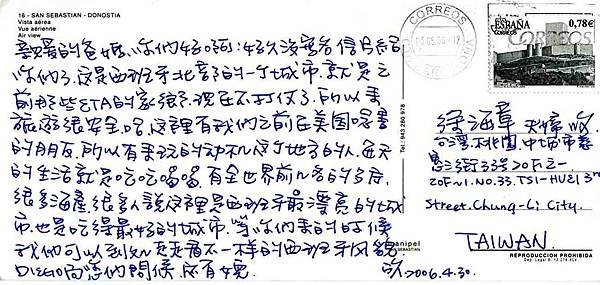 16 - SAN SEBASTIAN - DONOSTIA
Vista aérea
Vue aérienne
Air view
親愛的爸媽，你們好嗎？好久沒寫名信片給
你們了，這是西班牙北部的一個城市，就是之
前那些ETA的家鄉，現在不打仗了，所以來
旅遊很安全哈，這裡有我們之前在美國唸書
的朋友，所以有來玩的動禾這個地方的人，每天
的生活就是吃吃喝喝，有全世界前几名的
很多海產，很多人說這裡是西班牙最漂亮的城
市，也是吃得最好的城市，等你們來的時候
我們可以到處走走看不一樣的西班牙风貌
DIEGO向您們問候，还有嫂
CORREOS
0,78 €
CORREOS
Tel.: 943 280 978
徐海章
台灣桃園中壢市慈
惠三街33號20F之一
20F-1. NO.33. TSI-HUEI 3rd
Street. Chung-Li City.
TAIWAN.
2006.4.30.
anipel
SAN SEBASTIAN
REPRODUCCION PROHIBIDA